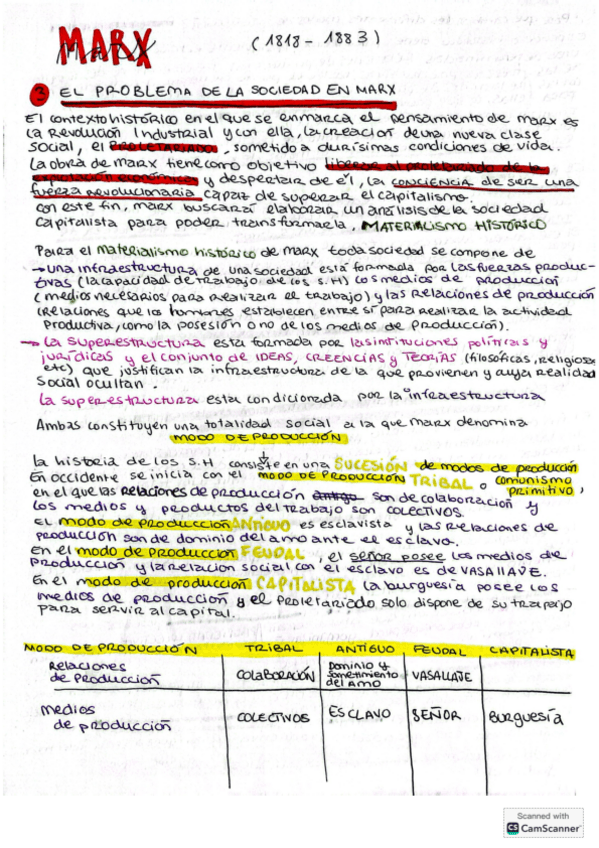 MARX (1818-1883)
3 EL PROBLEMA DE LA SOCIEDAD EN MARX
El contexto histórico en el que se enmarca el pensamiento de marx es
la Revolución Industrial y con ella, la creación de una nueva clase
social, el PROLETARIADO, sometido a durísimas condiciones de vida.
La obra de Marx tiene como objetivo liberar al proletariado de la
explotación económica y despertar de él, la conciencia de ser una
fuerza revolucionaria capaz de superar el capitalismo.
con este fin, marx buscará elaborar un análisis de la sociedad
capitalista para poder transformarla, MATERIALISMO HISTÓRICO
Para el materialismo histórico de Marx toda sociedad se compone de
→ una infraestructura de una sociedad está formada por las fuerzas produc-
tivas (la capacidad de trabajo de los S.H) los medios de producción
(medios necesarios para realizar el trabajo) y las relaciones de producción
(relaciones que los hombres establecen entre sí para realizar la actividad
productiva, como la posesión o no de los medios de producción).
→ La superestructura está formada por las instituciones políticas y
jurídicas y el conjunto de IDEAS, CREENCIAS y TEORÍAS (filosóficas, religiosa
etc) que justifican la infraestructura de la que provienen y cuya realidad
social ocultan.
La superestructura esta condicionada por la infraestructura
Ambas constituyen una totalidad social a la que Marx denomina
MODO DE PRODUCCIÓN
La historia de los S.H consiste en una SUCESIÓN de modos de producción
En occidente se inicia con MODO DE PRODUCCIÓN TRIBAL o comunismo
primitivo,
en el que las relaciones de producción antigo son de colaboración y
los medios y productos del trabajo son COLECTIVOS.
El modo de producción ANTIGUO es esclavista y las relaciones de
producción son de dominio del amo ante el esclavo.
En el modo de producción FEUDAL, el señor posee los medios de
producción y la relación social con el esclavo es de VASALLAJE.
En el modo de producción CAPITALISTA la burguesía posee los
medios de producción y el proletariado solo dispone de su trabajo
para servir al capital.
MODO DE PRODUCCIÓN TRIBAL ANTIGUO FEUDAL CAPITALISTA
Relaciones de producción COLABORACIÓN Dominio y sometimiento del amo VASALLAJE
Medios de producción COLECTIVOS ESCLAVO SEÑOR Burguesía
Scanned with
CS CamScanner